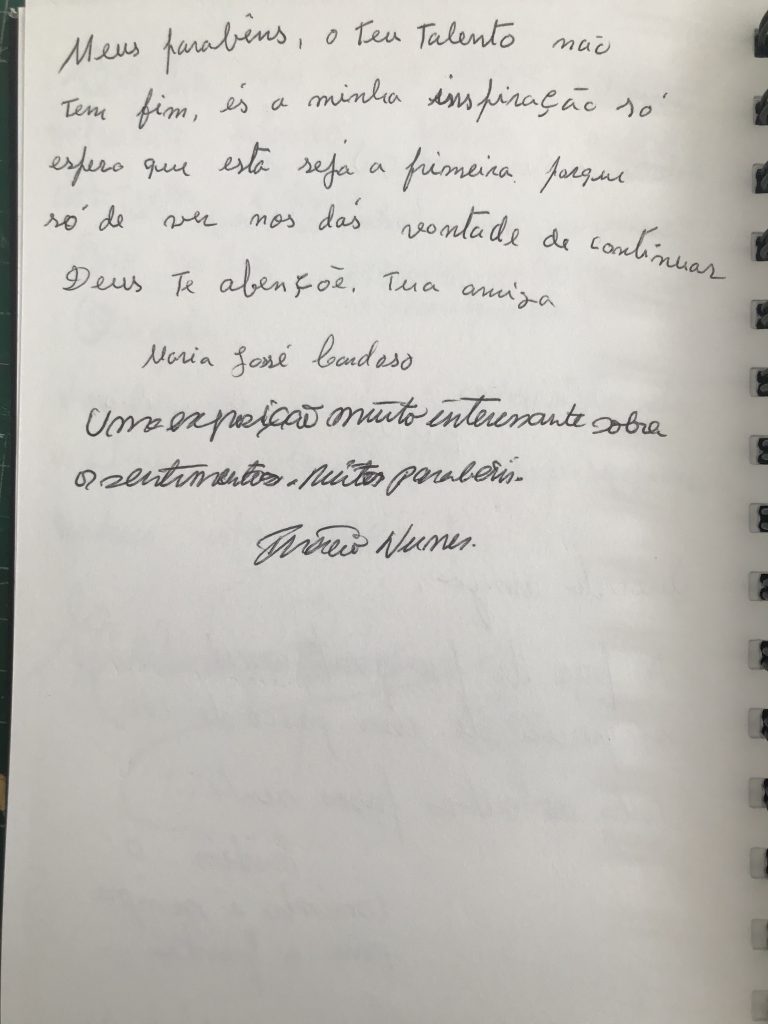 Meus parabêns, o teu talento não
tem fim, és a minha inspiração só
espero que esta seja a primeira. porque
só de ver nos dás vontade de continuar
Deus te abençõe. Tua amiga
Maria José Cardoso
Uma exposição muito interessante sobre
os sentimentos. Muitos parabéns.
Nunes.